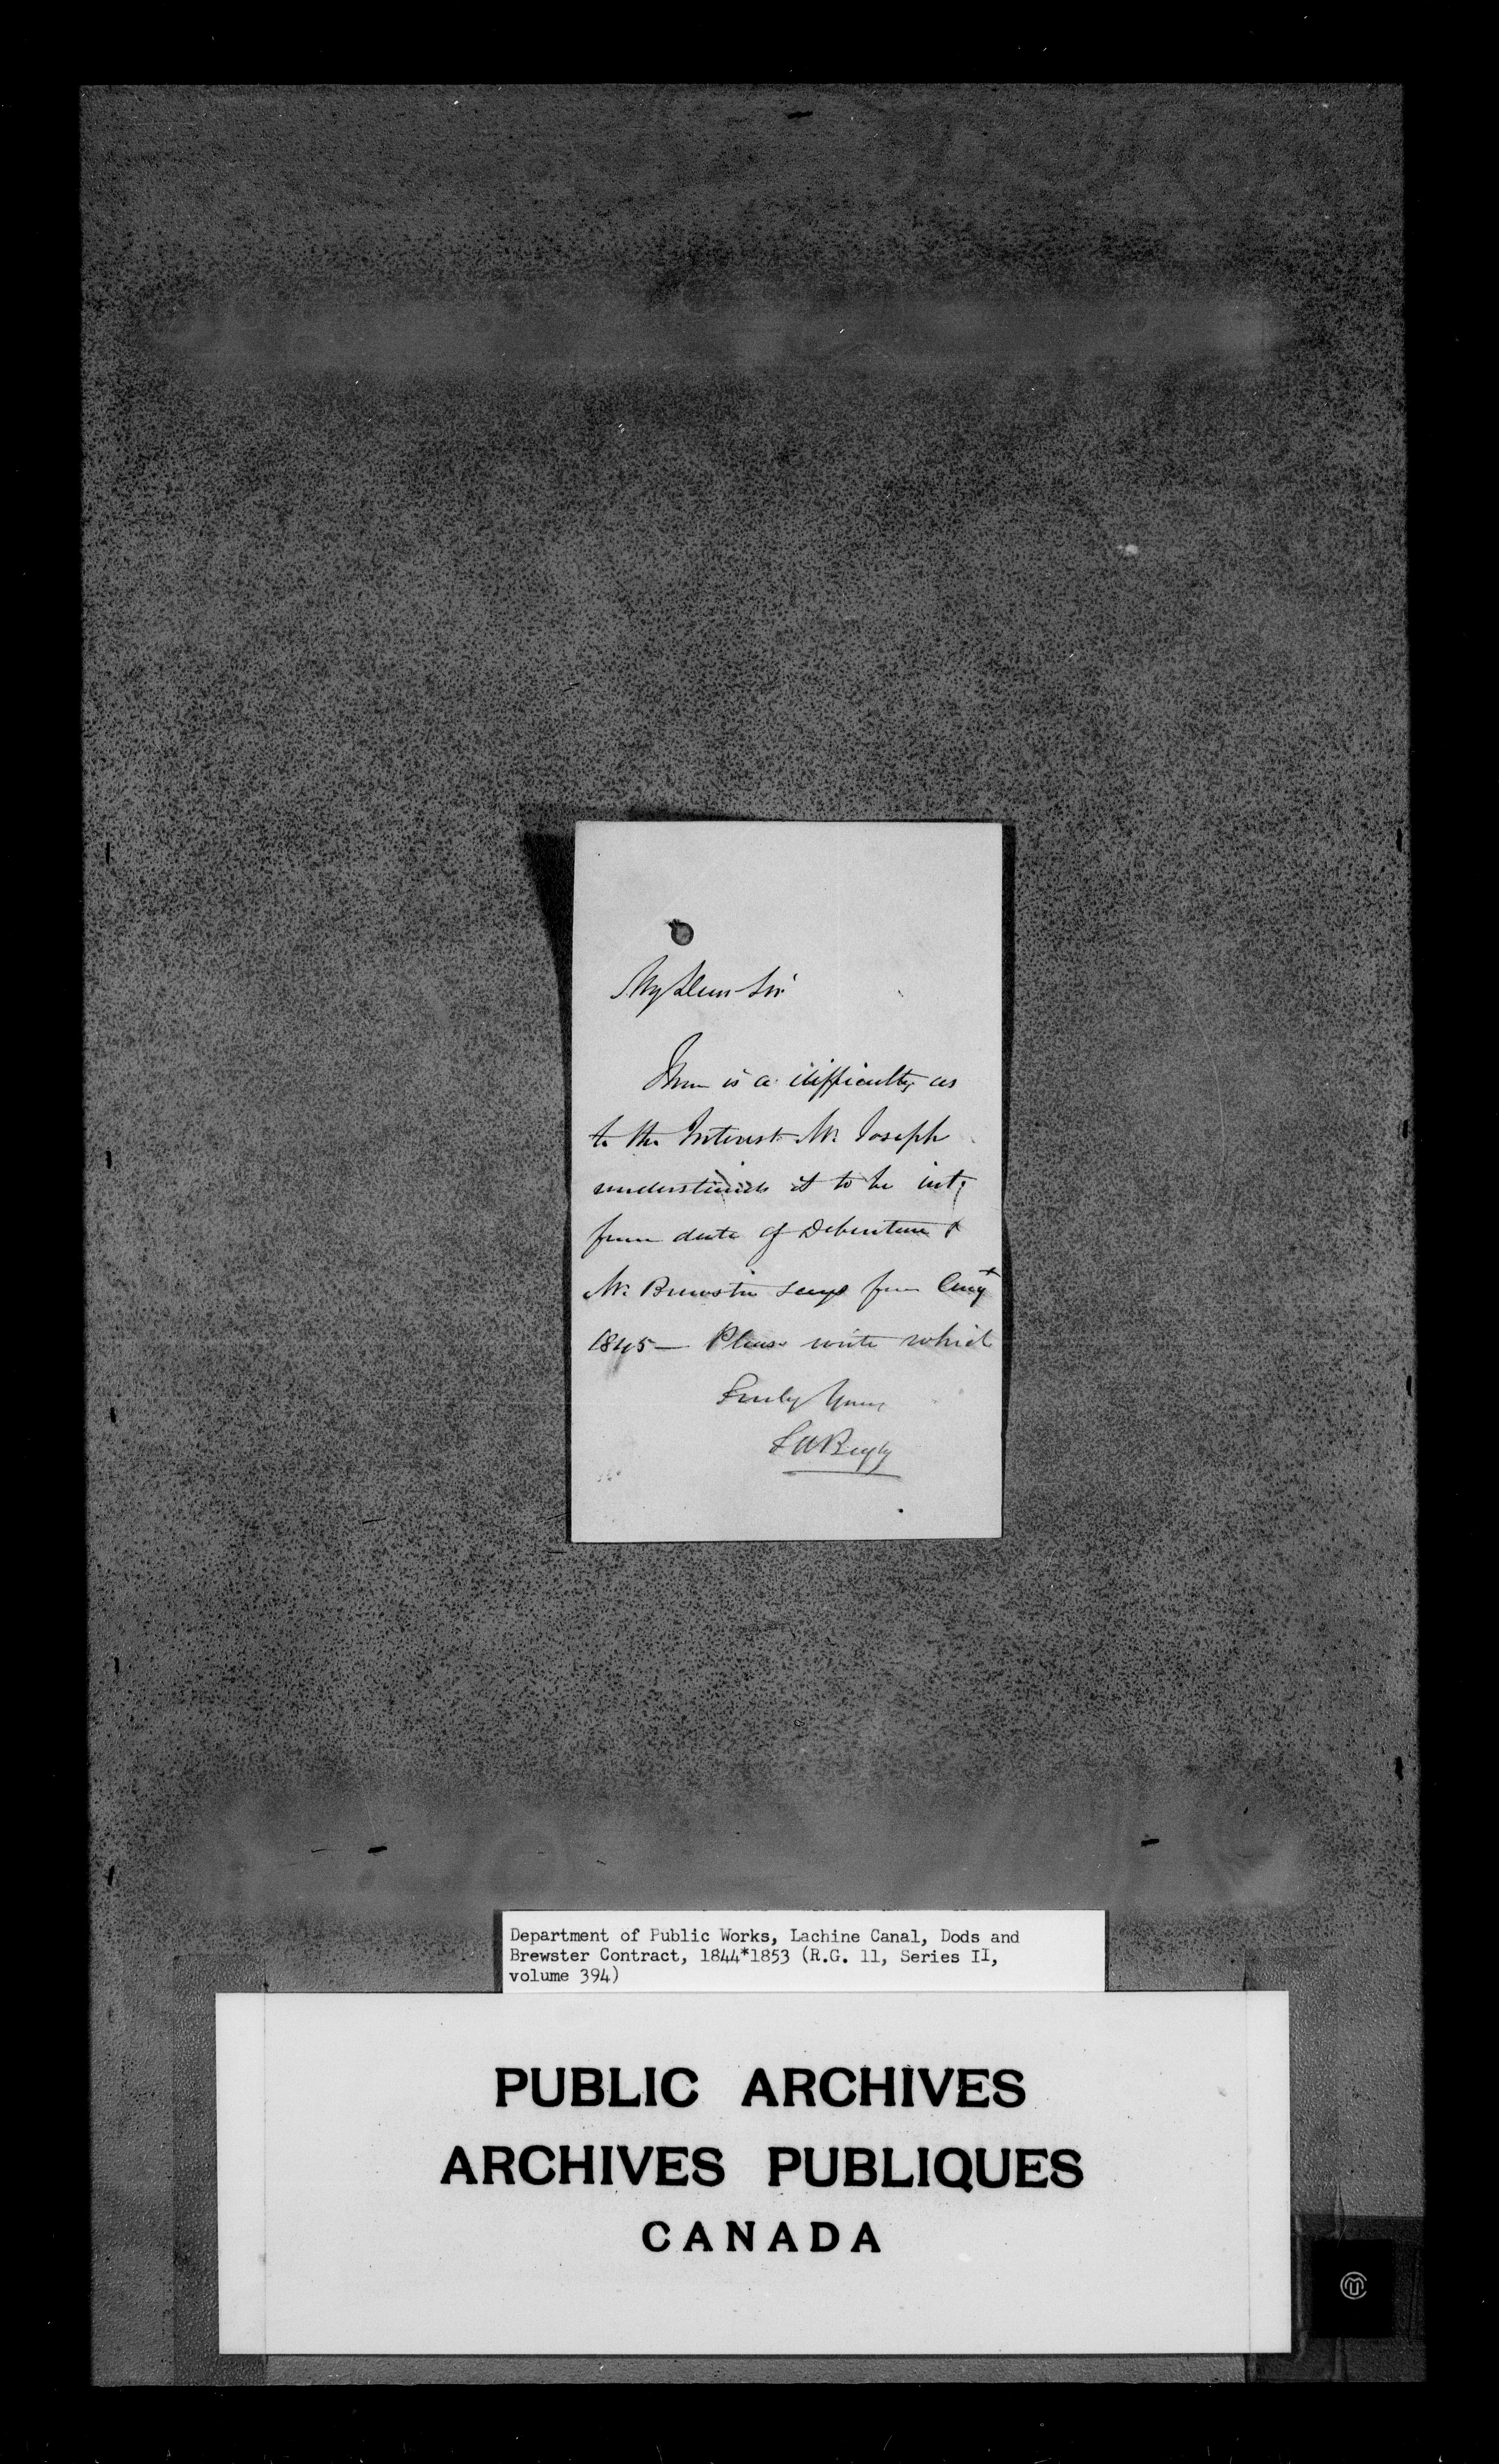 My Dear Sir
There is a difficulty as
to the Interest Mr. Joseph
understands it to be int:
from date of Debenture &
Mr. Brewster says from Augt
1845 — Please write which
Truly Yours
T A Begly
Department of Public Works, Lachine Canal, Dods and
Brewster Contract, 1844*1853 (R.G. 11, Series II,
volume 394)
PUBLIC ARCHIVES
ARCHIVES PUBLIQUES
CANADA